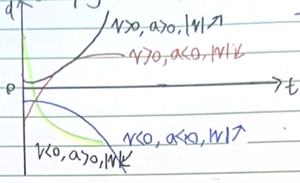 d
v>0, a>0, |v|↗
v>0, a<0, |v|↙
0
t
v<0, a<0, |v|↗
v<0, a>0, |v|↙